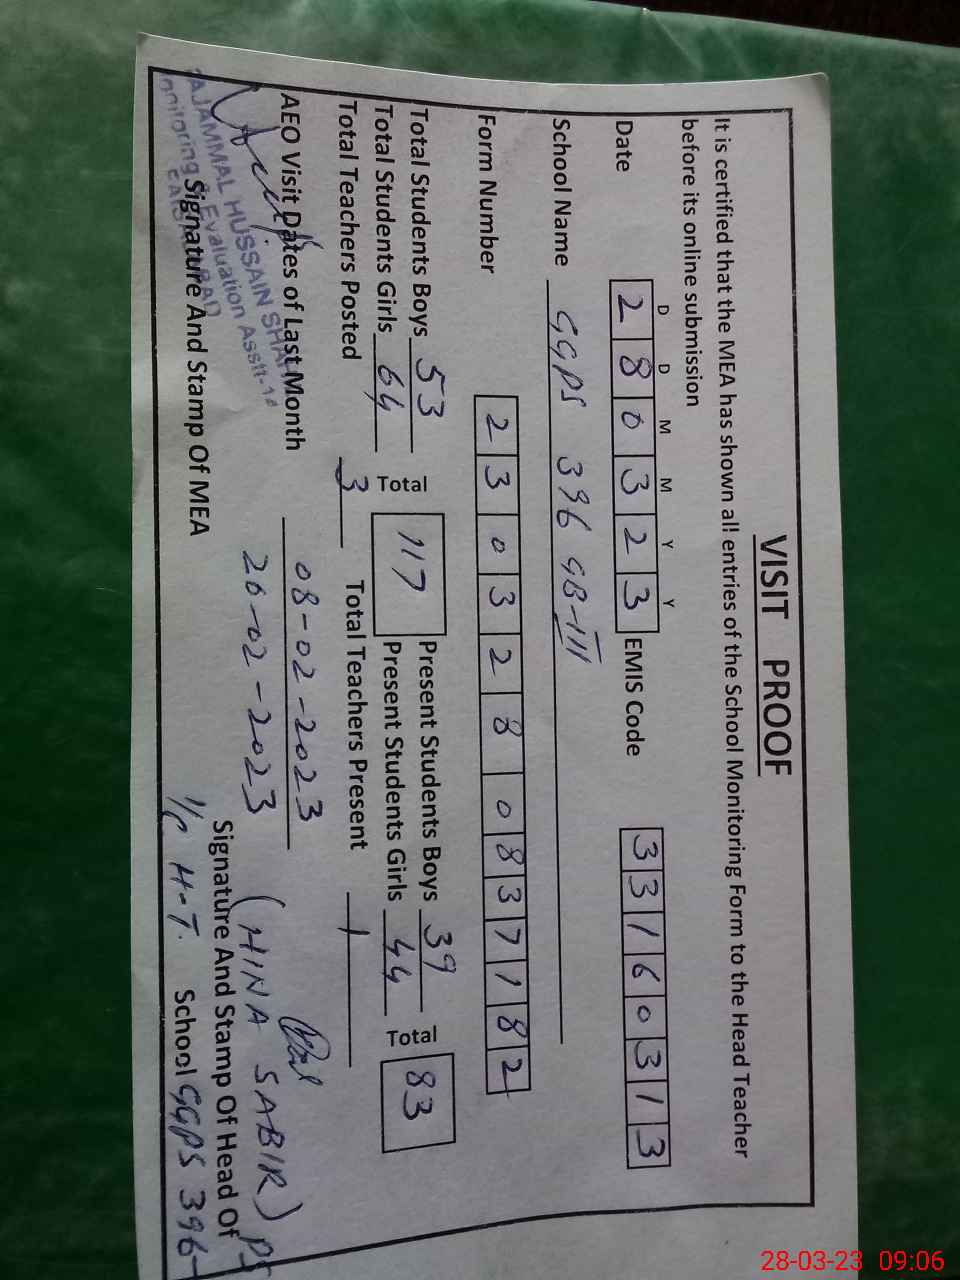 VISIT PROOF
It is certified that the MEA has shown all entries of the School Monitoring Form to the Head Teacher
before its online submission
D D M M Y Y
Date 2 8 0 3 2 3 EMIS Code 3 3 1 6 0 3 1 3
School Name GGPS 396 GB-III
Form Number 2 3 0 3 2 8 0 8 3 7 1 8 2
Total Students Boys 53 Total 117 Present Students Boys 39 Total 83
Total Students Girls 64 Present Students Girls 44
Total Teachers Posted 3 Total Teachers Present 1
AEO Visit Dates of Last Month 08-02-2023
20-02-2023
(HINA SABIR) PS
TAJAMMAL HUSSAIN SHAH
Monitoring & Evaluation Asstt-
Signature And Stamp Of MEA
Signature And Stamp Of Head Of
I/C H-T. School GGPS 396-
28-03-23 09:06